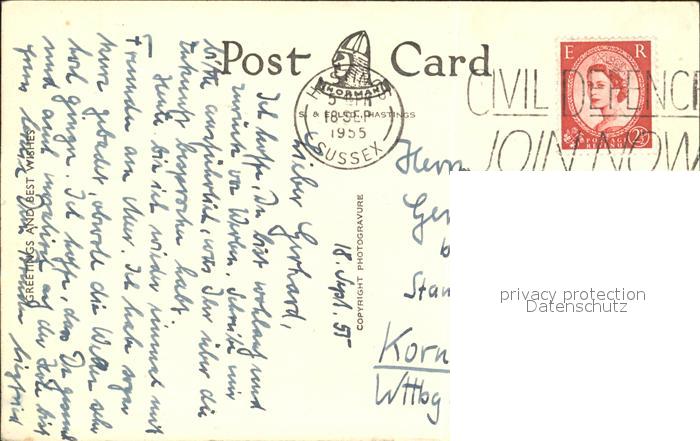 Post Card
NORMAN
S. & E. LTD. HASTINGS
18 SEP
1955
SUSSEX
CIVIL DEFENCE
JOIN NOW
E R
POSTAGE
REVENUE
2½
GREETINGS AND BEST WISHES
COPYRIGHT PHOTOGRAVURE
18. Sept. 55
Lieber Gerhard,
Ich hoffe, Du bist wohlauf und
zurück von Werken. Schreibe mir
bitte ausführlich, was Ihr über die
Zukunft besprochen habt.
Heute bin ich wieder einmal mit
Freunden am Meer. Ich habe sogar
gebadet, obwohl die Wellen sehr
hoch gingen. Ich hoffe, dass Du gesund
und auf der Höhe bist
Siegfried
Herrn
Ger
Stam
Korn
Wttbg
privacy protection
Datenschutz